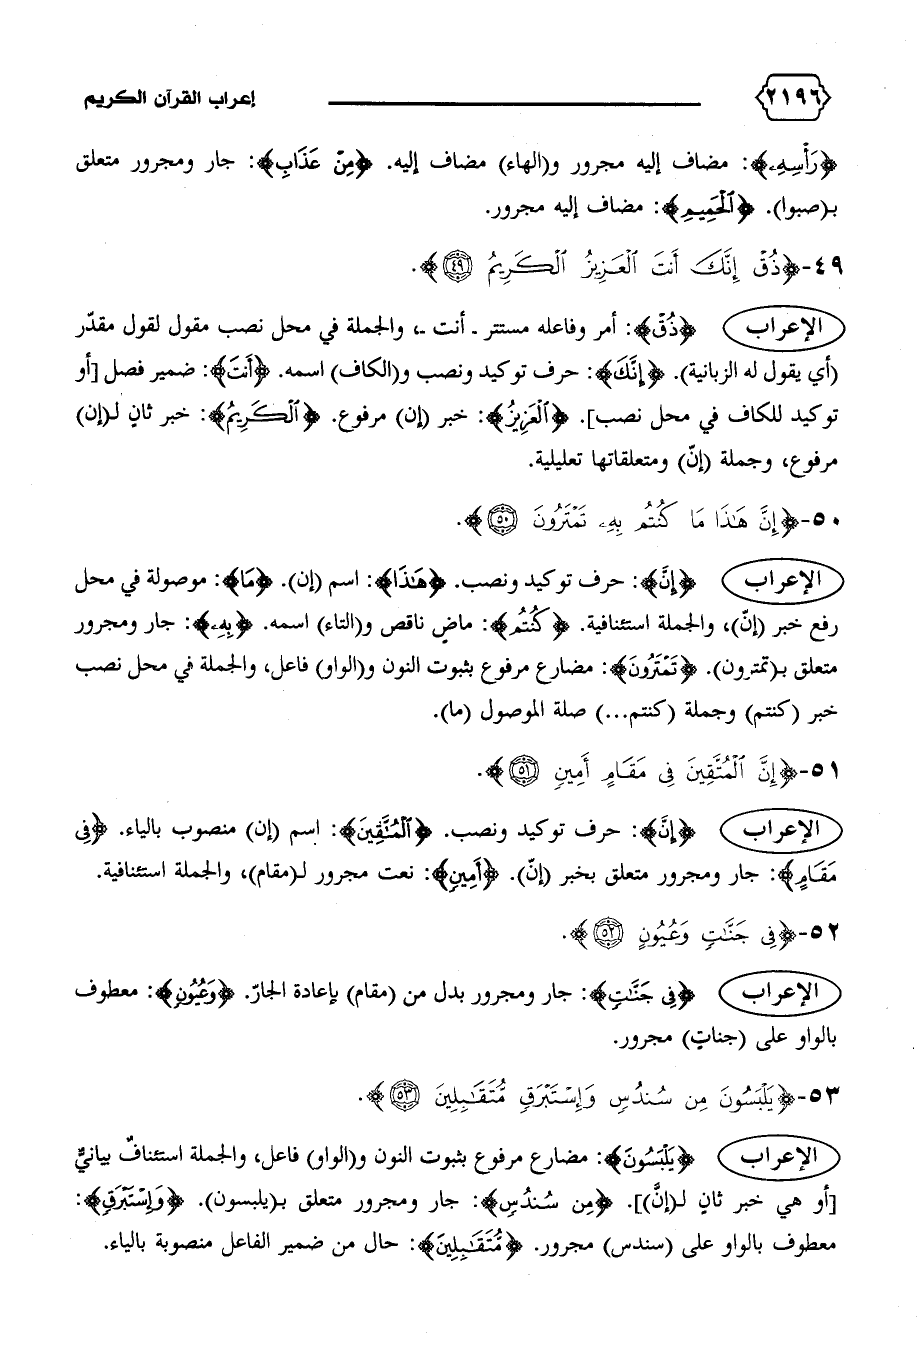 ٢١٩٦ إعراب القرآن الكريم
﴿رَأْسِهِۦ﴾: مضاف إليه مجرور و(الهاء) مضاف إليه. ﴿مِنْ عَذَابِ﴾: جار ومجرور متعلق
بـ(صبوا). ﴿ٱلْحَمِيمِ﴾: مضاف إليه مجرور.
٤٩-﴿ذُقْ إِنَّكَ أَنتَ ٱلْعَزِيزُ ٱلْكَرِيمُ ٤٩﴾.
الإعراب ﴿ذُقْ﴾: أمر وفاعله مستتر ـ أنت ـ، والجملة في محل نصب مقول لقول مقدّر
(أي يقول له الزبانية). ﴿إِنَّكَ﴾: حرف توكيد ونصب و(الكاف) اسمه. ﴿أَنتَ﴾: ضمير فصل [أو
توكيد للكاف في محل نصب]. ﴿ٱلْعَزِيزُ﴾: خبر (إن) مرفوع. ﴿ٱلْكَرِيمُ﴾: خبر ثانٍ لـ(إن)
مرفوع، وجملة (إنّ) ومتعلقاتها تعليلية.
٥٠-﴿إِنَّ هَٰذَا مَا كُنتُم بِهِۦ تَمْتَرُونَ ٥٠﴾.
الإعراب ﴿إِنَّ﴾: حرف توكيد ونصب. ﴿هَٰذَا﴾: اسم (إن). ﴿مَا﴾: موصولة في محل
رفع خبر (إنّ)، والجملة استئنافية. ﴿كُنتُم﴾: ماضٍ ناقص و(التاء) اسمه. ﴿بِهِۦ﴾: جار ومجرور
متعلق بـ(تمترون). ﴿تَمْتَرُونَ﴾: مضارع مرفوع بثبوت النون و(الواو) فاعل، والجملة في محل نصب
خبر (كنتم) وجملة (كنتم...) صلة الموصول (ما).
٥١-﴿إِنَّ ٱلْمُتَّقِينَ فِي مَقَامٍ أَمِينٍ ٥١﴾.
الإعراب ﴿إِنَّ﴾: حرف توكيد ونصب. ﴿ٱلْمُتَّقِينَ﴾: اسم (إن) منصوب بالياء. ﴿فِي
مَقَامٍ﴾: جار ومجرور متعلق بخبر (إنّ). ﴿أَمِينٍ﴾: نعت مجرور لـ(مقام)، والجملة استئنافية.
٥٢-﴿فِي جَنَّٰتٍ وَعُيُونٍ ٥٢﴾.
الإعراب ﴿فِي جَنَّٰتٍ﴾: جار ومجرور بدل من (مقام) بإعادة الجارّ. ﴿وَعُيُونٍ﴾: معطوف
بالواو على (جناتٍ) مجرور.
٥٣-﴿يَلْبَسُونَ مِن سُندُسٍ وَإِسْتَبْرَقٍ مُّتَقَٰبِلِينَ ٥٣﴾.
الإعراب ﴿يَلْبَسُونَ﴾: مضارع مرفوع بثبوت النون و(الواو) فاعل، والجملة استئنافٌ بيانيٌّ
[أو هي خبر ثانٍ لـ(إنَّ)]. ﴿مِن سُندُسٍ﴾: جار ومجرور متعلق بـ(يلبسون). ﴿وَإِسْتَبْرَقٍ﴾:
معطوف بالواو على (سندس) مجرور. ﴿مُّتَقَٰبِلِينَ﴾: حال من ضمير الفاعل منصوبة بالياء.